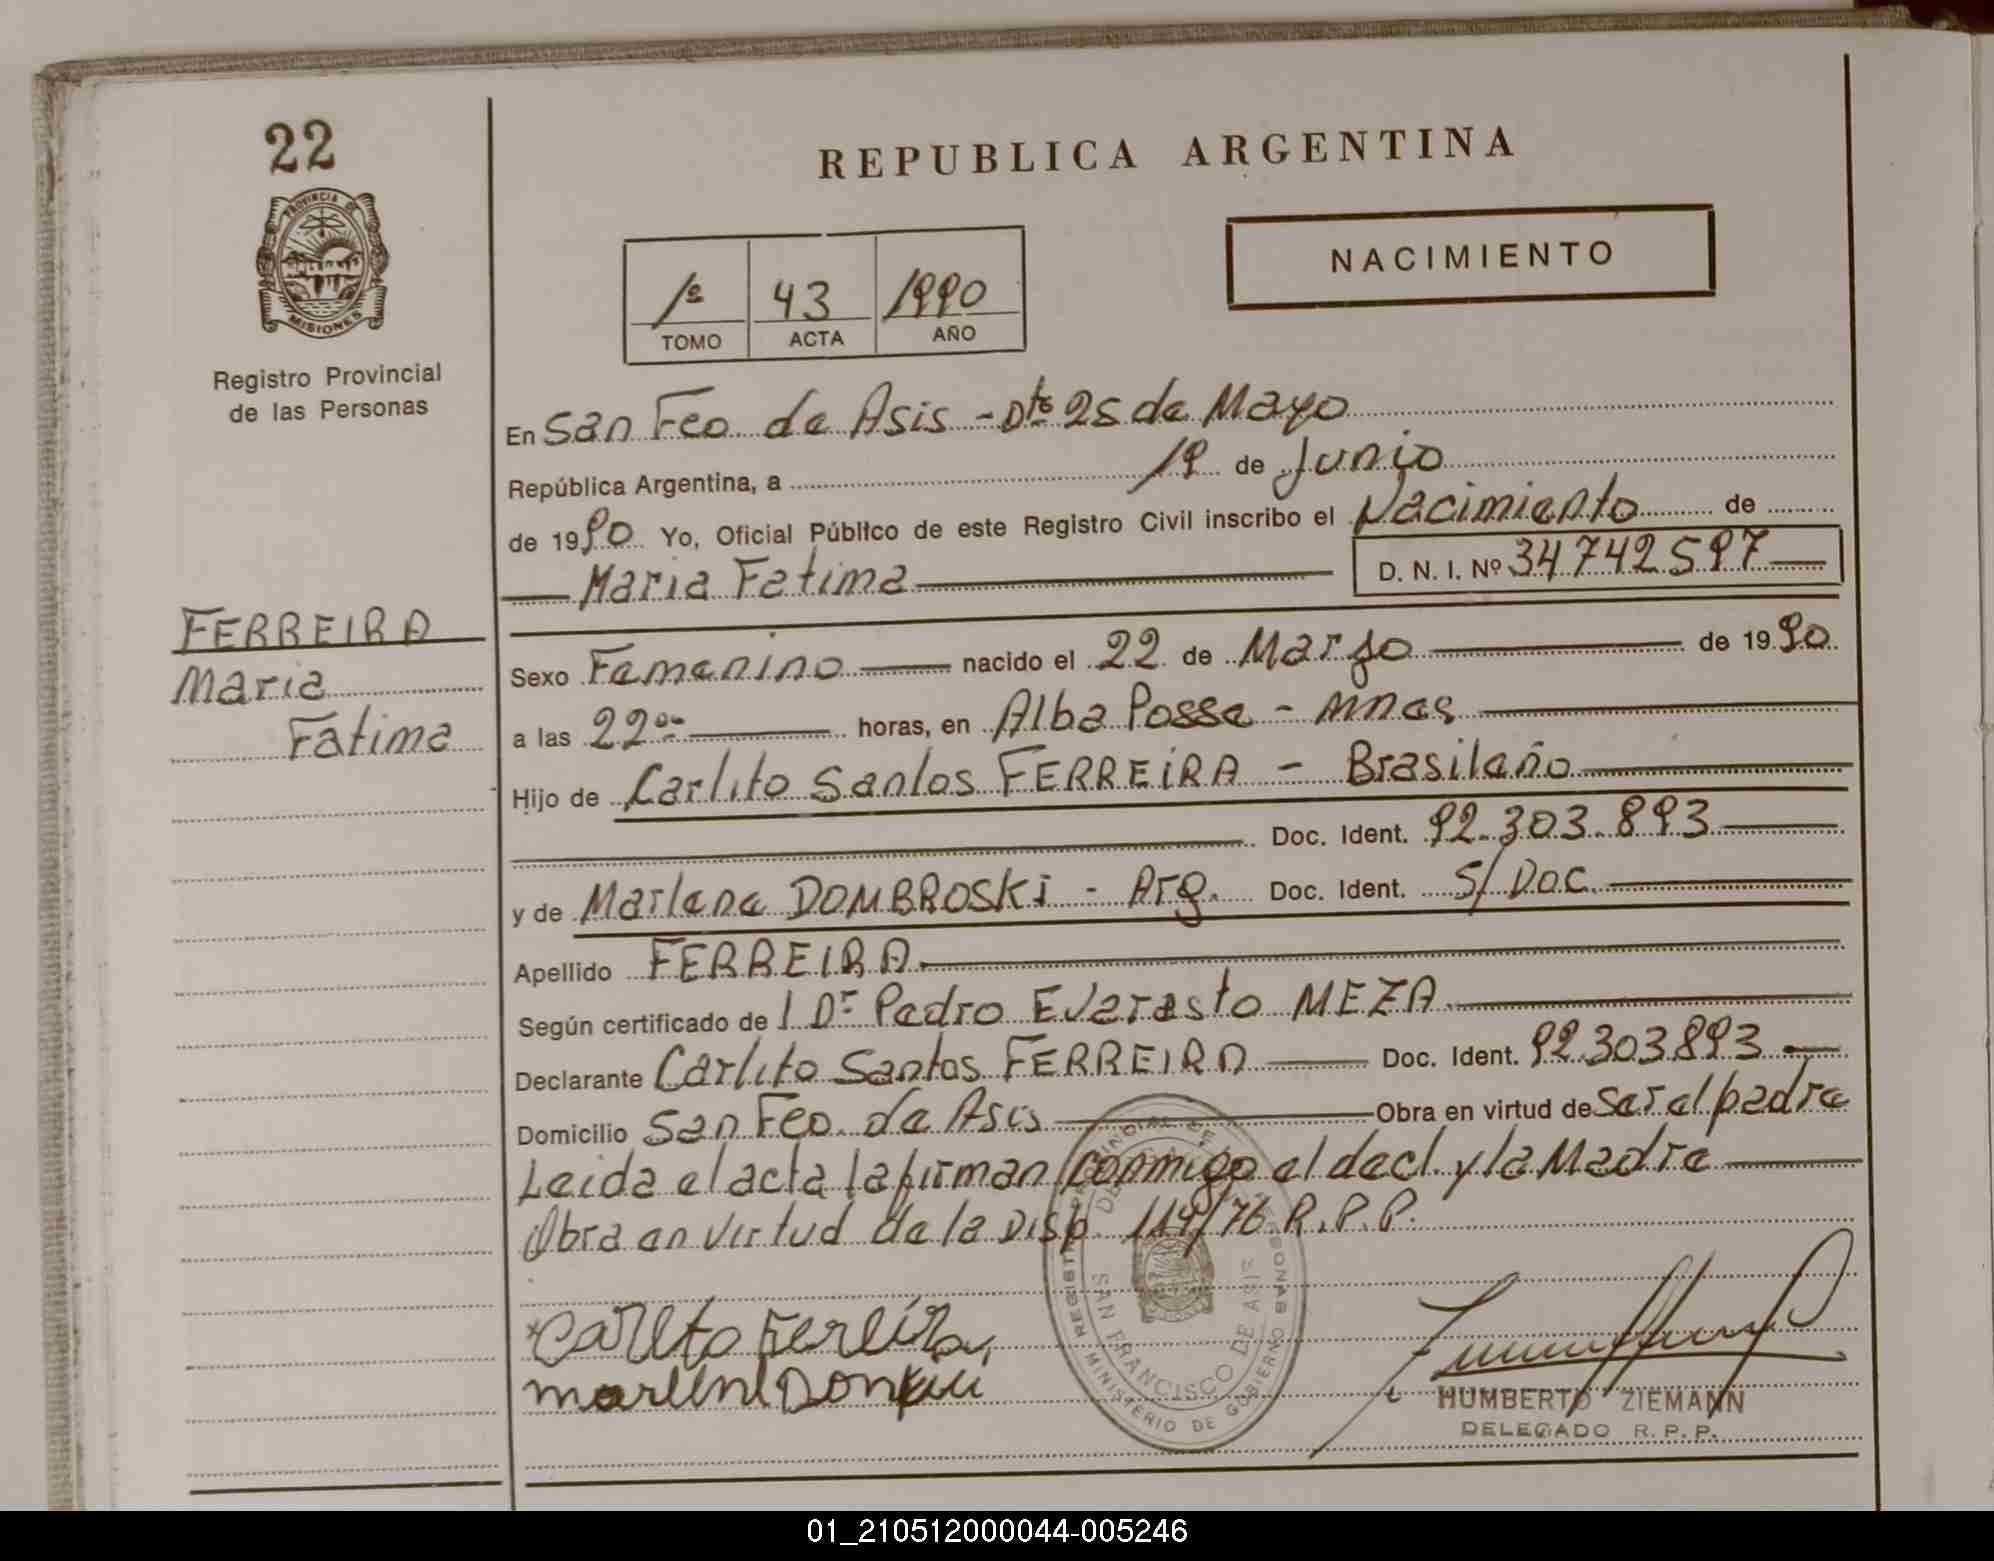 22
PROVINCIA DE
MISIONES
Registro Provincial
de las Personas
REPUBLICA ARGENTINA
NACIMIENTO
1º 43 1990
TOMO ACTA AÑO
En San Fco de Asis - Dto 25 de Mayo
República Argentina, a 19 de Junio
de 1990 Yo, Oficial Público de este Registro Civil inscribo el Nacimiento de
Maria Fatima D. N. I. Nº 34742597
FERREIRA
Maria
Fatima
Sexo Femenino nacido el 22 de Marzo de 1990
a las 22ºº horas, en Alba Posse - Mnes
Hijo de Carlito Santos FERREIRA - Brasileño
Doc. Ident. 92.303.893
y de Marlene DOMBROSKI - Arg. Doc. Ident. S/Doc.
Apellido FERREIRA
Según certificado de l Dr Pedro Evarasto MEZA
Declarante Carlito Santos FERREIRA Doc. Ident. 92.303.893
Domicilio San Fco. de Asis Obra en virtud de ser el padre
Leida el acta la firman conmigo el decl. y la Madre
Obra en virtud de la Disp. 119/76 R.P.P.
Carlito Ferreira
REGISTRO PROVINCIAL DE
SAN FRANCISCO DE ASIS
MINISTERIO DE GOBIERNO
HUMBERTO ZIEMANN
DELEGADO R.P.P.
01_210512000044-005246